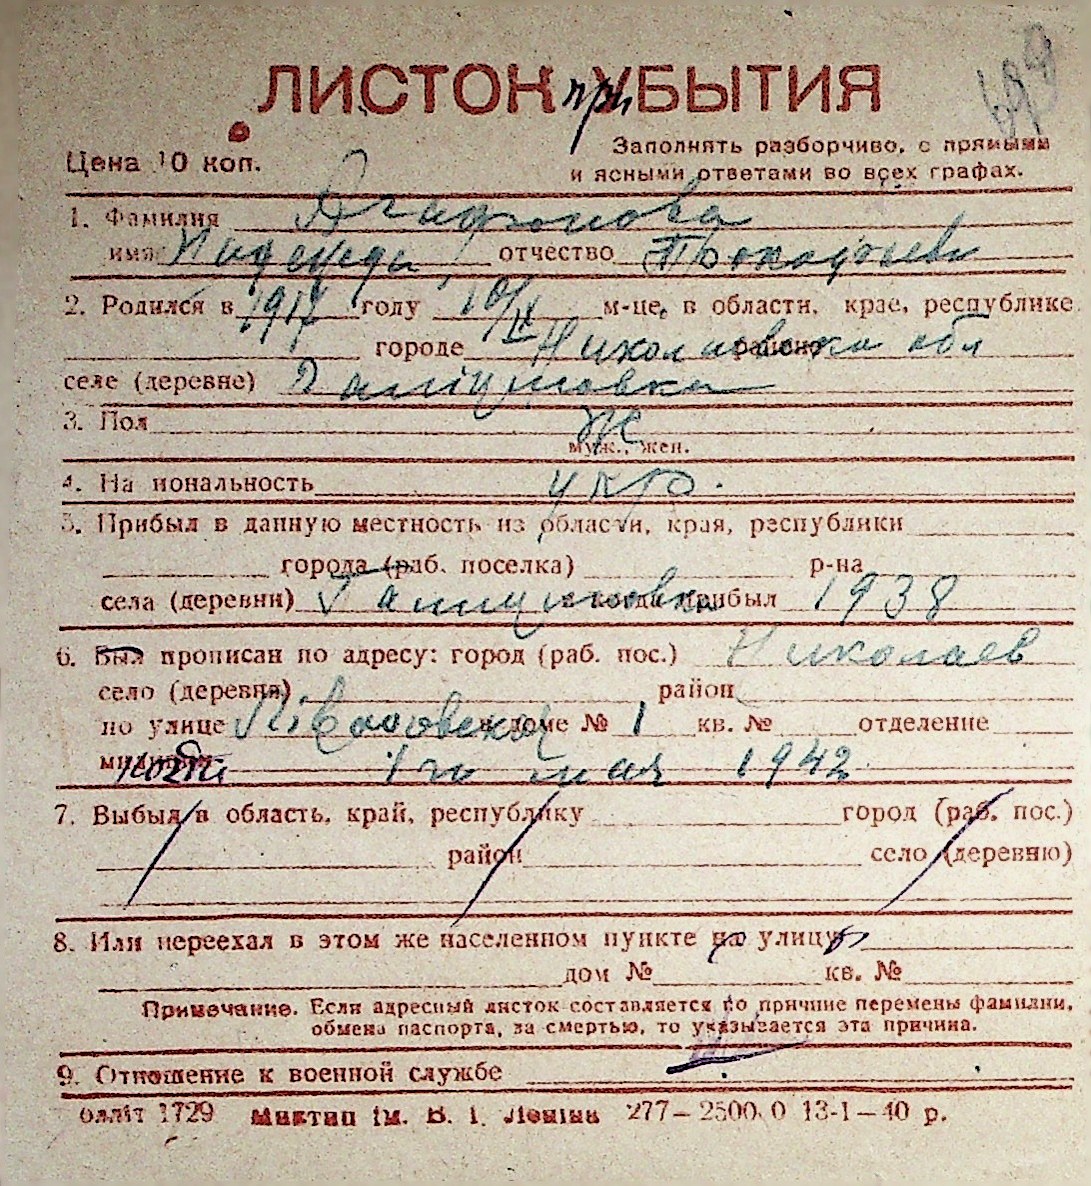 ЛИСТОК при УБЫТИЯ
Цена 10 коп.
Заполнять разборчиво, с прямыми
и ясными ответами во всех графах.
1. Фамилия Агафонова
имя Надежда отчество Прокофьевн
2. Родился в 1917 году 10/IX м-це, в области, крае, республике
городе районе Николаевская обл
селе (деревне)
3. Пол Ж
муж., жен.
4. Национальность укр.
5. Прибыл в данную местность из области, края, республики
города (раб. поселка) р-на
села (деревни) и когда прибыл 1938
6. Был прописан по адресу: город (раб. пос.) Николаев
село (деревня) район
по улице в доме № 1 кв. № отделение
милиции 1го мая 1942
7. Выбыл в область, край, республику город (раб. пос.)
район село (деревню)
8. Или переехал в этом же населенном пункте на улицу
дом № кв. №
Примечание. Если адресный листок составляется по причине перемены фамилии,
обмена паспорта, за смертью, то указывается эта причина.
9. Отношение к военной службе
Облліт 1729 Миктип ім. В. І. Леніна 277—2500.0 13-1—40 р.